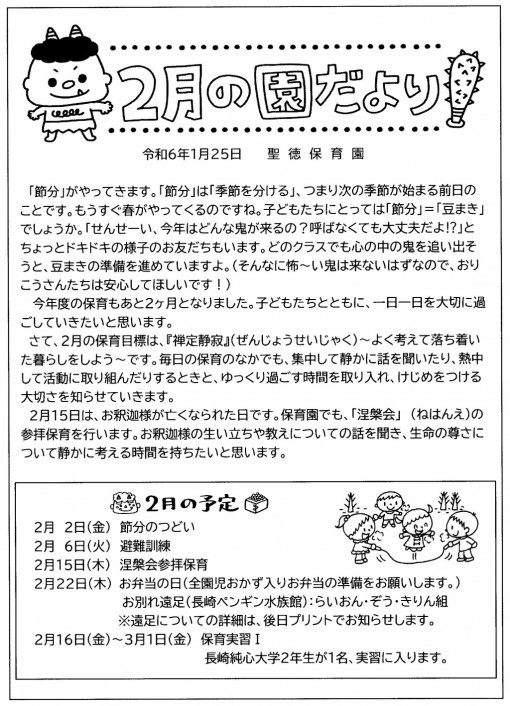 2月の園だより
令和6年1月25日　聖徳保育園
「節分」がやってきます。「節分」は「季節を分ける」、つまり次の季節が始まる前日の
ことです。もうすぐ春がやってくるのですね。子どもたちにとっては「節分」＝「豆まき」
でしょうか。「せんせーい、今年はどんな鬼が来るの？呼ばなくても大丈夫だよ!?」と
ちょっとドキドキの様子のお友だちもいます。どのクラスでも心の中の鬼を追い出そ
うと、豆まきの準備を進めていますよ。（そんなに怖～い鬼は来ないはずなので、おり
こうさんたちは安心してほしいです！）
今年度の保育もあと2ヶ月となりました。子どもたちとともに、一日一日を大切に過
ごしていきたいと思います。
さて、2月の保育目標は、『禅定静寂』（ぜんじょうせいじゃく）～よく考えて落ち着い
た暮らしをしよう～です。毎日の保育のなかでも、集中して静かに話を聞いたり、熱中
して活動に取り組んだりするときと、ゆっくり過ごす時間を取り入れ、けじめをつける
大切さを知らせていきます。
2月15日は、お釈迦様が亡くなられた日です。保育園でも、「涅槃会」（ねはんえ）の
参拝保育を行います。お釈迦様の生い立ちや教えについての話を聞き、生命の尊さに
ついて静かに考える時間を持ちたいと思います。
2月の予定
2月　2日（金）　節分のつどい
2月　6日（火）　避難訓練
2月15日（木）　涅槃会参拝保育
2月22日（木）　お弁当の日（全園児おかず入りお弁当の準備をお願いします。）
お別れ遠足（長崎ペンギン水族館）：らいおん・ぞう・きりん組
※遠足についての詳細は、後日プリントでお知らせします。
2月16日（金）～3月1日（金）　保育実習Ⅰ
長崎純心大学2年生が1名、実習に入ります。